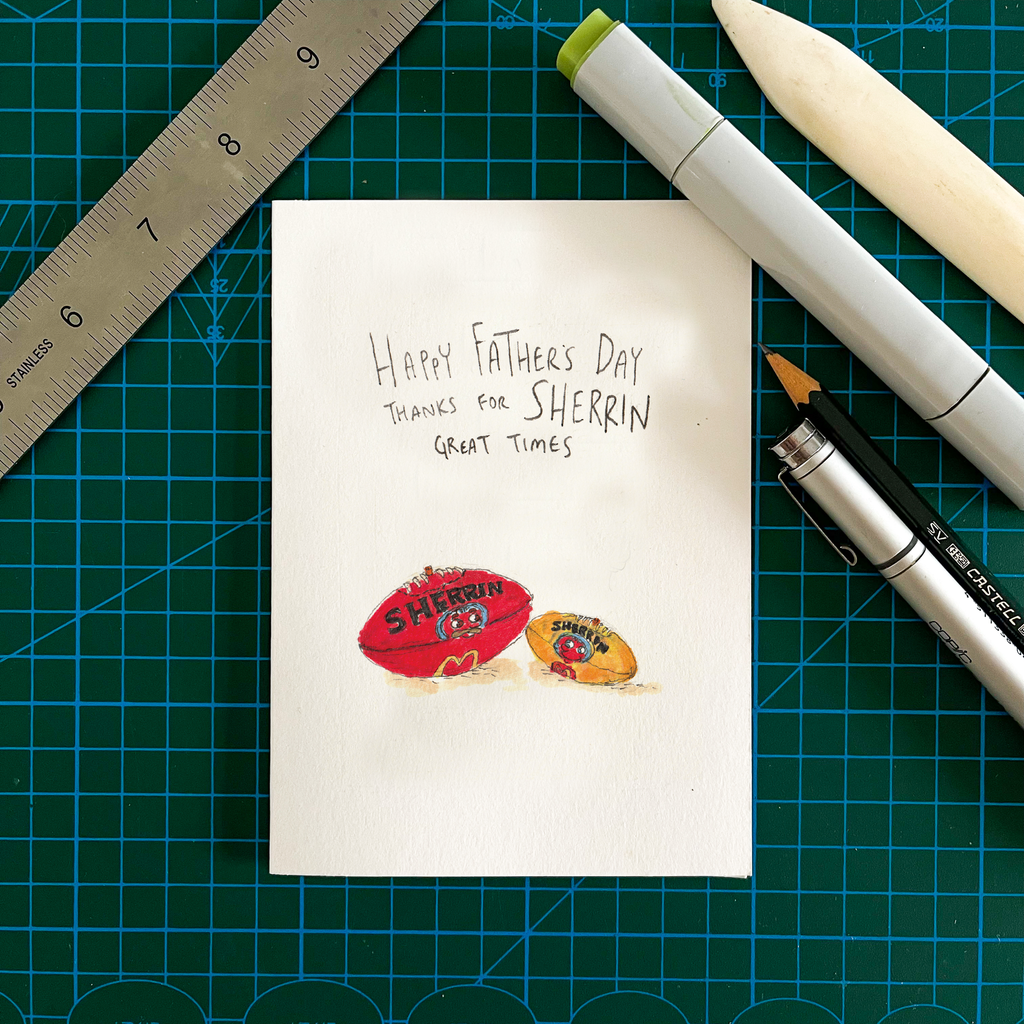 9
8
7
6
STAINLESS
HAPPY FATHER'S DAY
THANKS FOR SHERRIN
GREAT TIMES
SHERRIN
SHERRIN
CASTELL
90
25